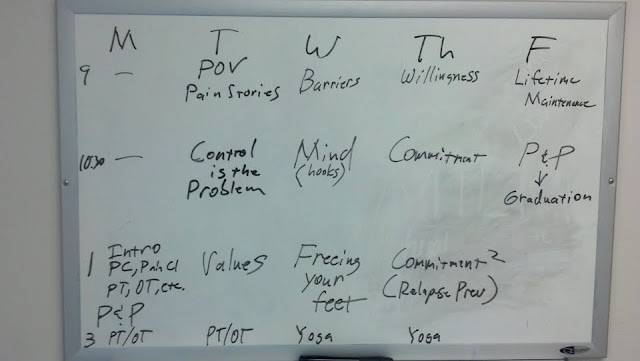 M T W Th F
9 — POV Barriers Willingness Lifetime
Pain Stories Maintenance
10:30 — Control Mind Commitment P&P
is the (hooks) ↓
Problem Graduation
1 Intro Values Freeing Commitment²
PC, Pain Cl your (Relapse Prev)
PT, OT, etc. feet
P&P
3 PT/OT PT/OT Yoga Yoga